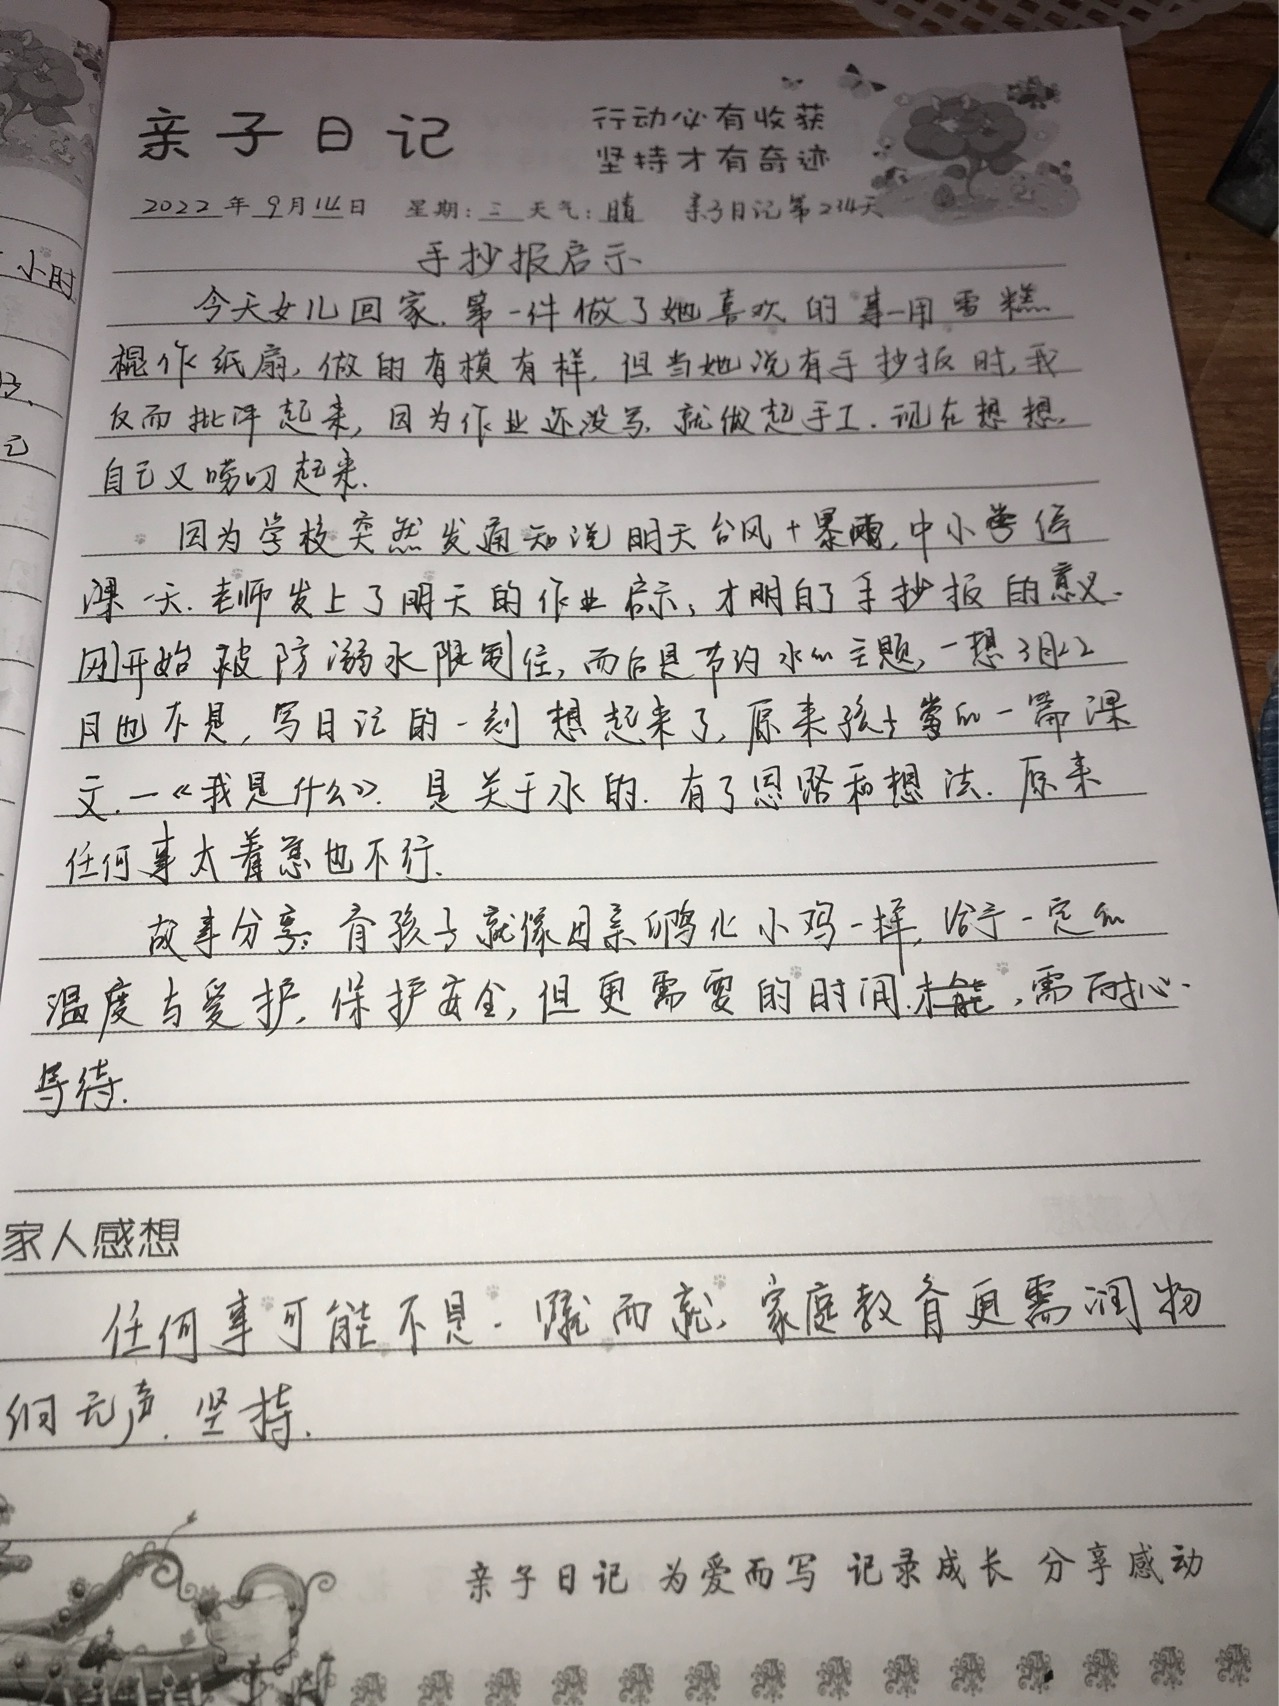 亲子日记
行动必有收获
坚持才有奇迹
2022年9月14日 星期:三 天气:晴 亲子日记第234天
手抄报启示
今天女儿回家.第一件做了她喜欢的事一用雪糕
棍作纸扇,做的有模有样.但当她说有手抄报时,我
反而批评起来,因为作业还没写.就做起手工.现在想想.
自己又唠叨起来.
因为学校突然发通知说明天台风+暴雨,中小学停
课一天.老师发上了明天的作业启示,才明白了手抄报的意义.
刚开始被防溺水限制住,而后是节约水的主题,一想3月22
日也不是,写日记的一刻想起来了,原来孩子学的一篇课
文.一《我是什么》.是关于水的.有了思路和想法.原来
任何事太着急也不行.
故事分享:育孩子就像母亲孵化小鸡一样,给予一定的
温度与爱护,保护安全,但更需要的时间.才能,需耐心.
等待.
家人感想
任何事可能不是一蹴而就,家庭教育更需润物
细无声.坚持.
亲子日记 为爱而写 记录成长 分享感动
小时